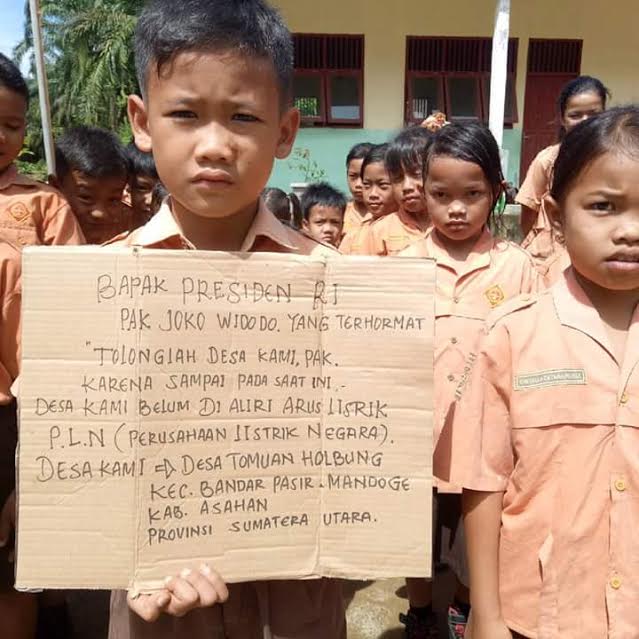 BAPAK PRESIDEN RI
PAK JOKO WIDODO. YANG TERHORMAT
"TOLONGLAH DESA KAMI, PAK.
KARENA SAMPAI PADA SAAT INI.-
DESA KAMI BELUM DI ALIRI ARUS LISTRIK
P.L.N (PERUSAHAAN LISTRIK NEGARA).
DESA KAMI => DESA TOMUAN HOLBUNG
KEC. BANDAR PASIR. MANDOGE
KAB. ASAHAN
PROVINSI SUMATERA UTARA.